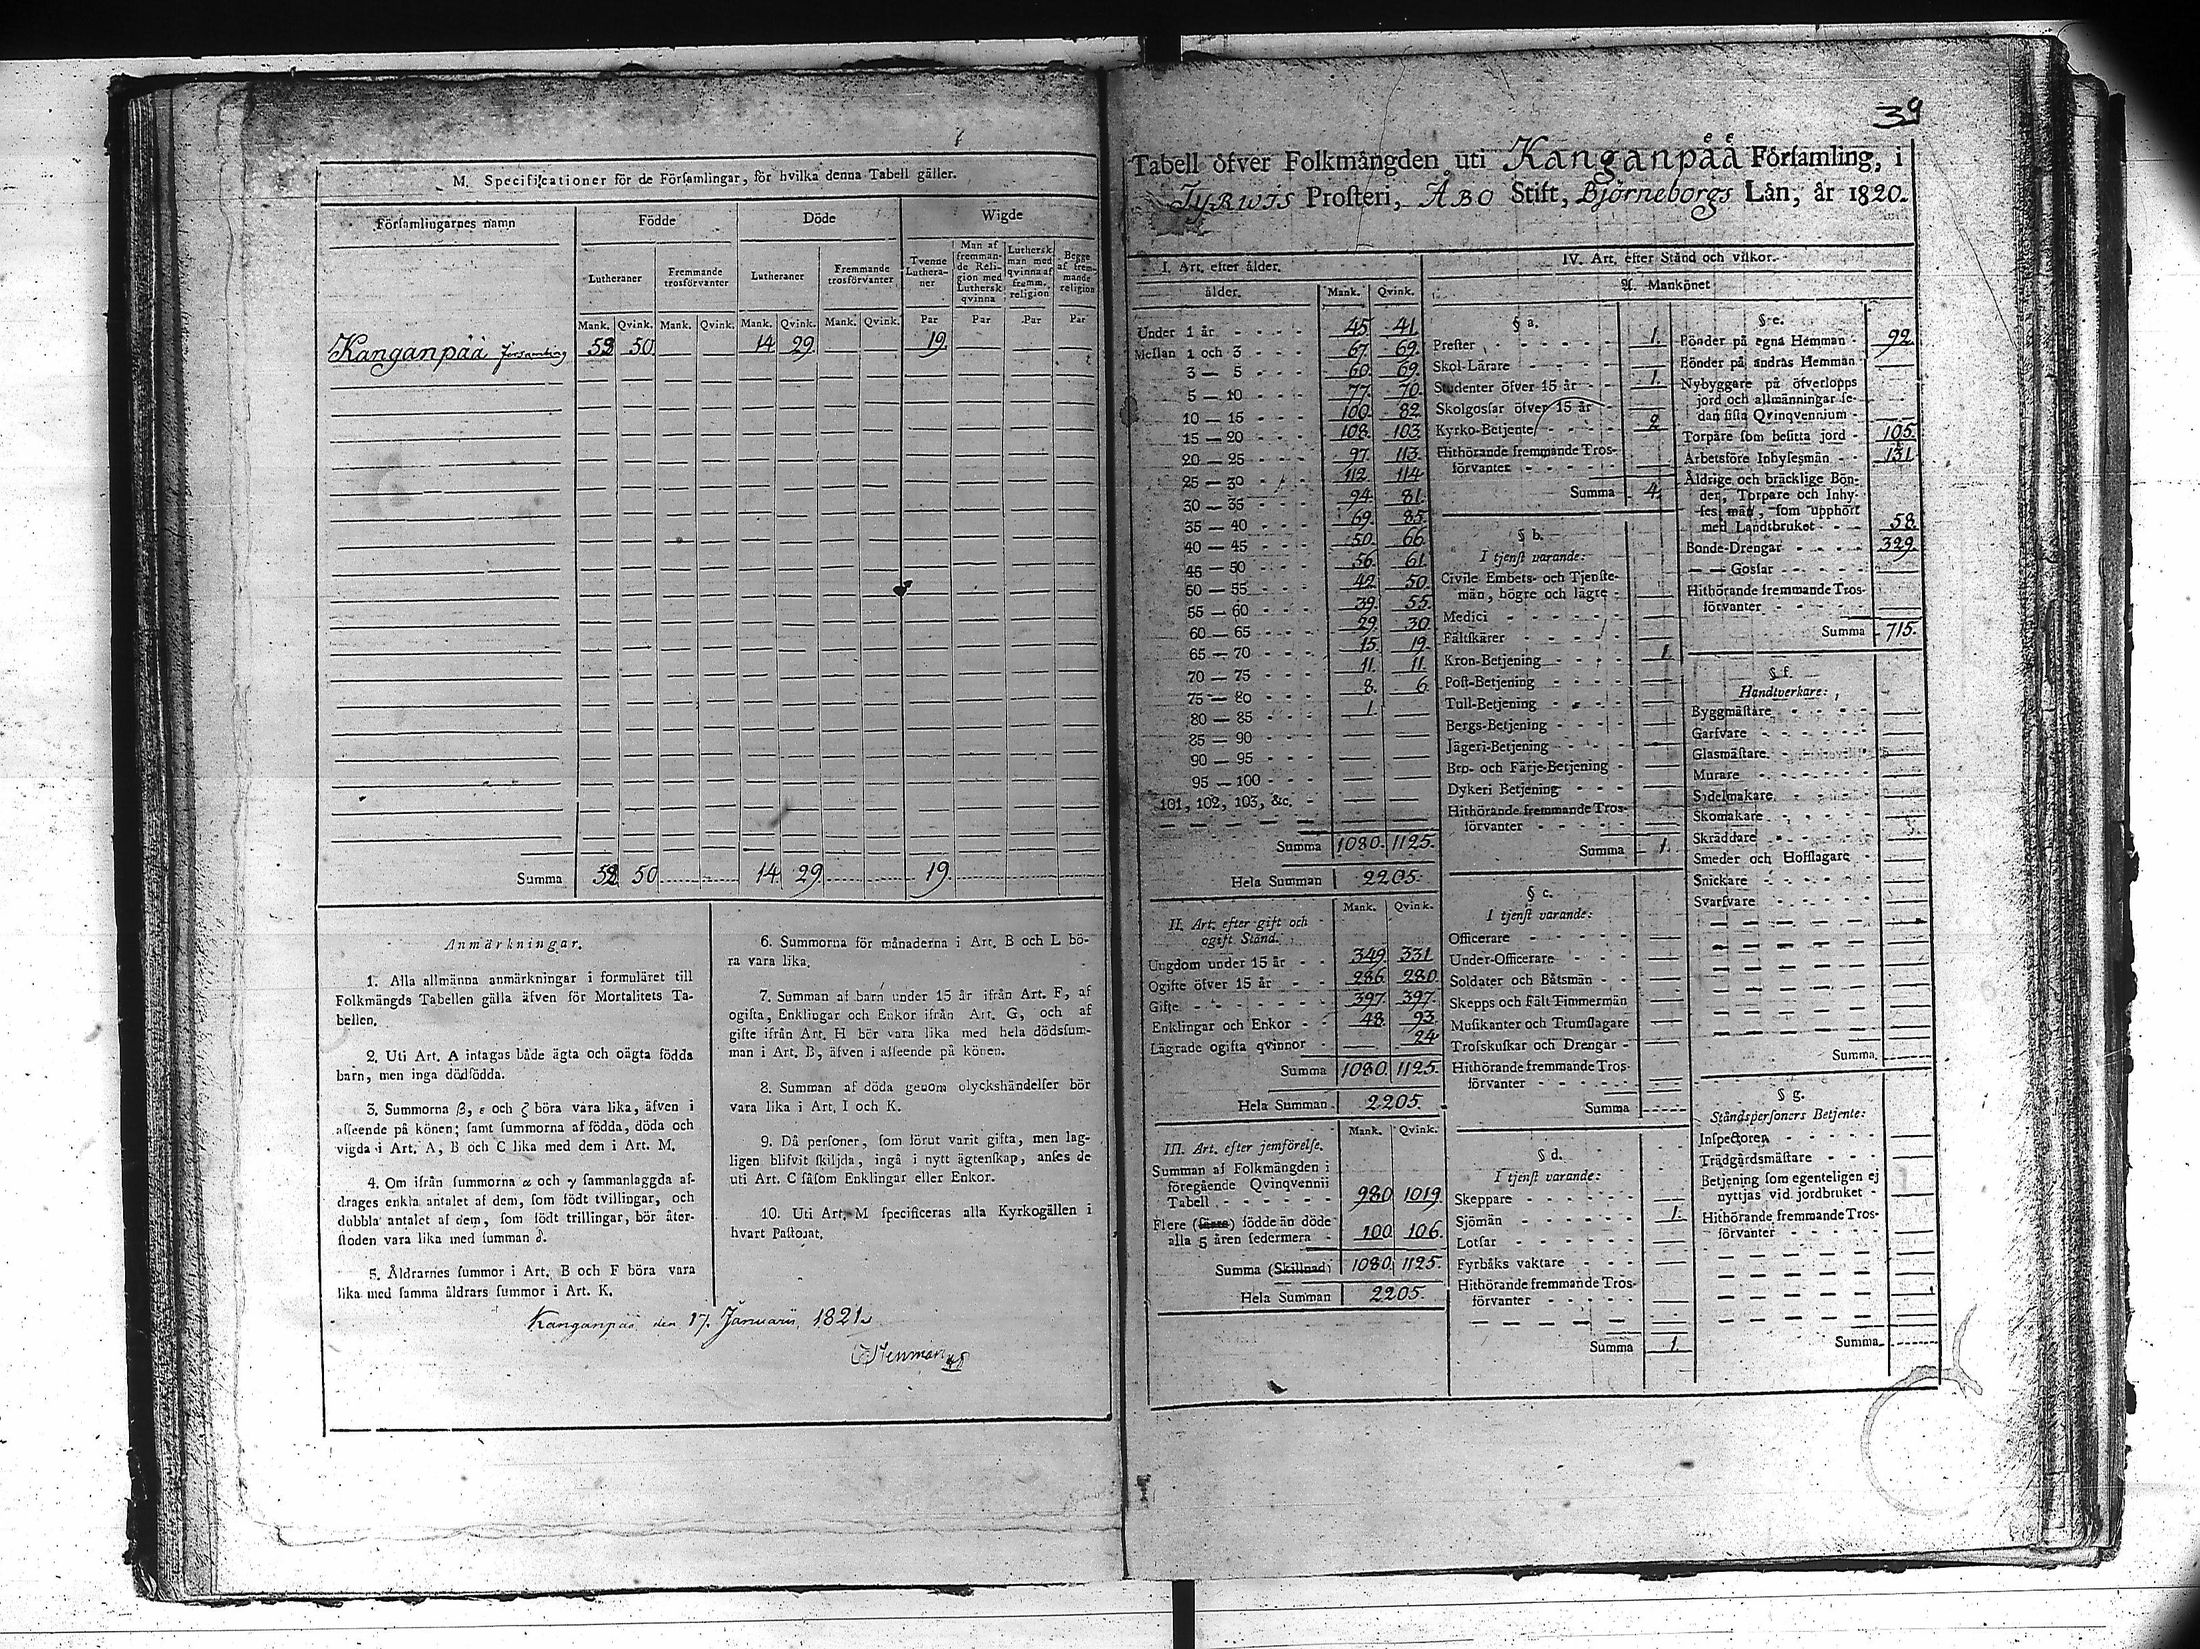 M. Specificationer för de Församlingar, för hvilka denna Tabell gäller.
Församlingarnes namn Födde Döde Wigde
Lutheraner Fremmande trosförvanter Lutheraner Fremmande trosförvanter Tvenne Lutheraner Man af fremmande Religion med Luthersk qvinna Luthersk man med qvinna af fremm. religion Begge af fremmande religion
Mank. Qvink. Mank. Qvink. Mank. Qvink. Mank. Qvink. Par Par Par Par
Kanganpää Församling 52 50 — — 14 29 — — 19 — — —
Summa 52 50 14 29 19
Anmärkningar.
1. Alla allmänna anmärkningar i formuläret till
Folkmängds Tabellen gälla äfven för Mortalitets Ta-
bellen.
2. Uti Art. A intagas både ägta och oägta födda
barn, men inga dödfödda.
3. Summorna β, ε och ζ böra vara lika, äfven i
afseende på könen; samt summorna af födda, döda och
vigda i Art. A, B och C lika med dem i Art. M.
4. Om ifrån summorna α och γ sammanlaggda af-
drages enkla antalet af dem, som födt tvillingar, och
dubbla antalet af dem, som födt trillingar, bör åter-
stoden vara lika med summan δ.
5. Åldrarnes summor i Art. B och F böra vara
lika med samma åldrars summor i Art. K.
6. Summorna för månaderna i Art. B och L bö-
ra vara lika.
7. Summan af barn under 15 år ifrån Art. F, af
ogifta, Enklingar och Enkor ifrån Art. G, och af
gifte ifrån Art. H bör vara lika med hela dödssum-
man i Art. B, äfven i afseende på könen.
8. Summan af döda genom olyckshändelser bör
vara lika i Art. I och K.
9. Då personer, som förut varit gifta, men lag-
ligen blifvit skiljda, ingå i nytt ägtenskap, anses de
uti Art. C såsom Enklingar eller Enkor.
10. Uti Art. M specificeras alla Kyrkogällen i
hvart Pastorat.
Kanganpää den 17. Januarii 1821.
39
Tabell öfver Folkmängden uti Kanganpää Församling, i
Tyrwis Prosteri, Åbo Stift, Björneborgs Län, år 1820.
I. Art. efter ålder.
ålder. Mank. Qvink.
Under 1 år 45 41
Mellan 1 och 3 67 69
3 — 5 60 69
5 — 10 77 70
10 — 15 100 82
15 — 20 108 103
20 — 25 97 113
25 — 30 112 114
30 — 35 94 81
35 — 40 69 85
40 — 45 50 66
45 — 50 56 61
50 — 55 42 50
55 — 60 39 55
60 — 65 29 30
65 — 70 15 19
70 — 75 11 11
75 — 80 8 6
80 — 85 1 —
85 — 90 — —
90 — 95 — —
95 — 100 — —
101, 102, 103, &c. — —
Summa 1080. 1125.
Hela Summan 2205.
Mank. Qvink.
II. Art. efter gift och
ogift Stånd.
Ungdom under 15 år 349 331
Ogifte öfver 15 år 286 280
Gifte 397 397
Enklingar och Enkor 48 93
Lägrade ogifta qvinnor — 24
Summa 1080 1125.
Hela Summan 2205.
Mank. Qvink.
III. Art. efter jemförelse.
Summan af Folkmängden i
föregående Qvinqvennii
Tabell 980 1019
Flere (färre) födde än döde
alla 5 åren sedermera 100 106
Summa (Skillnad) 1080 1125.
Hela Summan 2205.
IV. Art. efter Stånd och vilkor.
A. Mankönet
§ a.
Prester 1.
Skol-Lärare —
Studenter öfver 15 år 1.
Skolgossar öfver 15 år —
Kyrko-Betjente 2
Hithörande fremmande Tros-
förvanter —
Summa 4.
§ b.
I tjenst varande:
Civile Embets- och Tjenste-
män, högre och lägre —
Medici —
Fältskärer —
Kron-Betjening 1
Post-Betjening —
Tull-Betjening —
Bergs-Betjening —
Jägeri-Betjening —
Bro- och Färje-Betjening —
Dykeri Betjening —
Hithörande fremmande Tros-
förvanter —
Summa 1.
§ c.
I tjenst varande:
Officerare —
Under-Officerare —
Soldater och Båtsmän —
Skepps och Fält Timmermän —
Musikanter och Trumslagare —
Trosskuskar och Drengar —
Hithörande fremmande Tros-
förvanter —
Summa
§ d.
I tjenst varande:
Skeppare —
Sjömän 1.
Lotsar —
Fyrbåks vaktare —
Hithörande fremmande Tros-
förvanter —
Summa 1
§ e.
Bönder på egna Hemman 92
Bönder på andras Hemman —
Nybyggare på öfverlopps
jord och allmänningar se-
dan sista Qvinqvennium —
Torpare som besitta jord 105.
Arbetsföre Inhysesmän 131
Åldrige och bräcklige Bön-
der, Torpare och Inhy-
ses män, som upphört
med Landtbruket 58.
Bonde-Drengar 329.
— — Gossar —
Hithörande fremmande Tros-
förvanter —
Summa 715.
§ f.
Handtverkare:
Byggmästare —
Garfvare —
Glasmästare —
Murare —
Sadelmakare —
Skomakare —
Skräddare —
Smeder och Hofslagare —
Snickare —
Svarfvare —
Summa
§ g.
Ståndspersoners Betjente:
Inspectorer —
Trädgårdsmästare —
Betjening som egenteligen ej
nyttjas vid jordbruket —
Hithörande fremmande Tros-
förvanter —
Summa